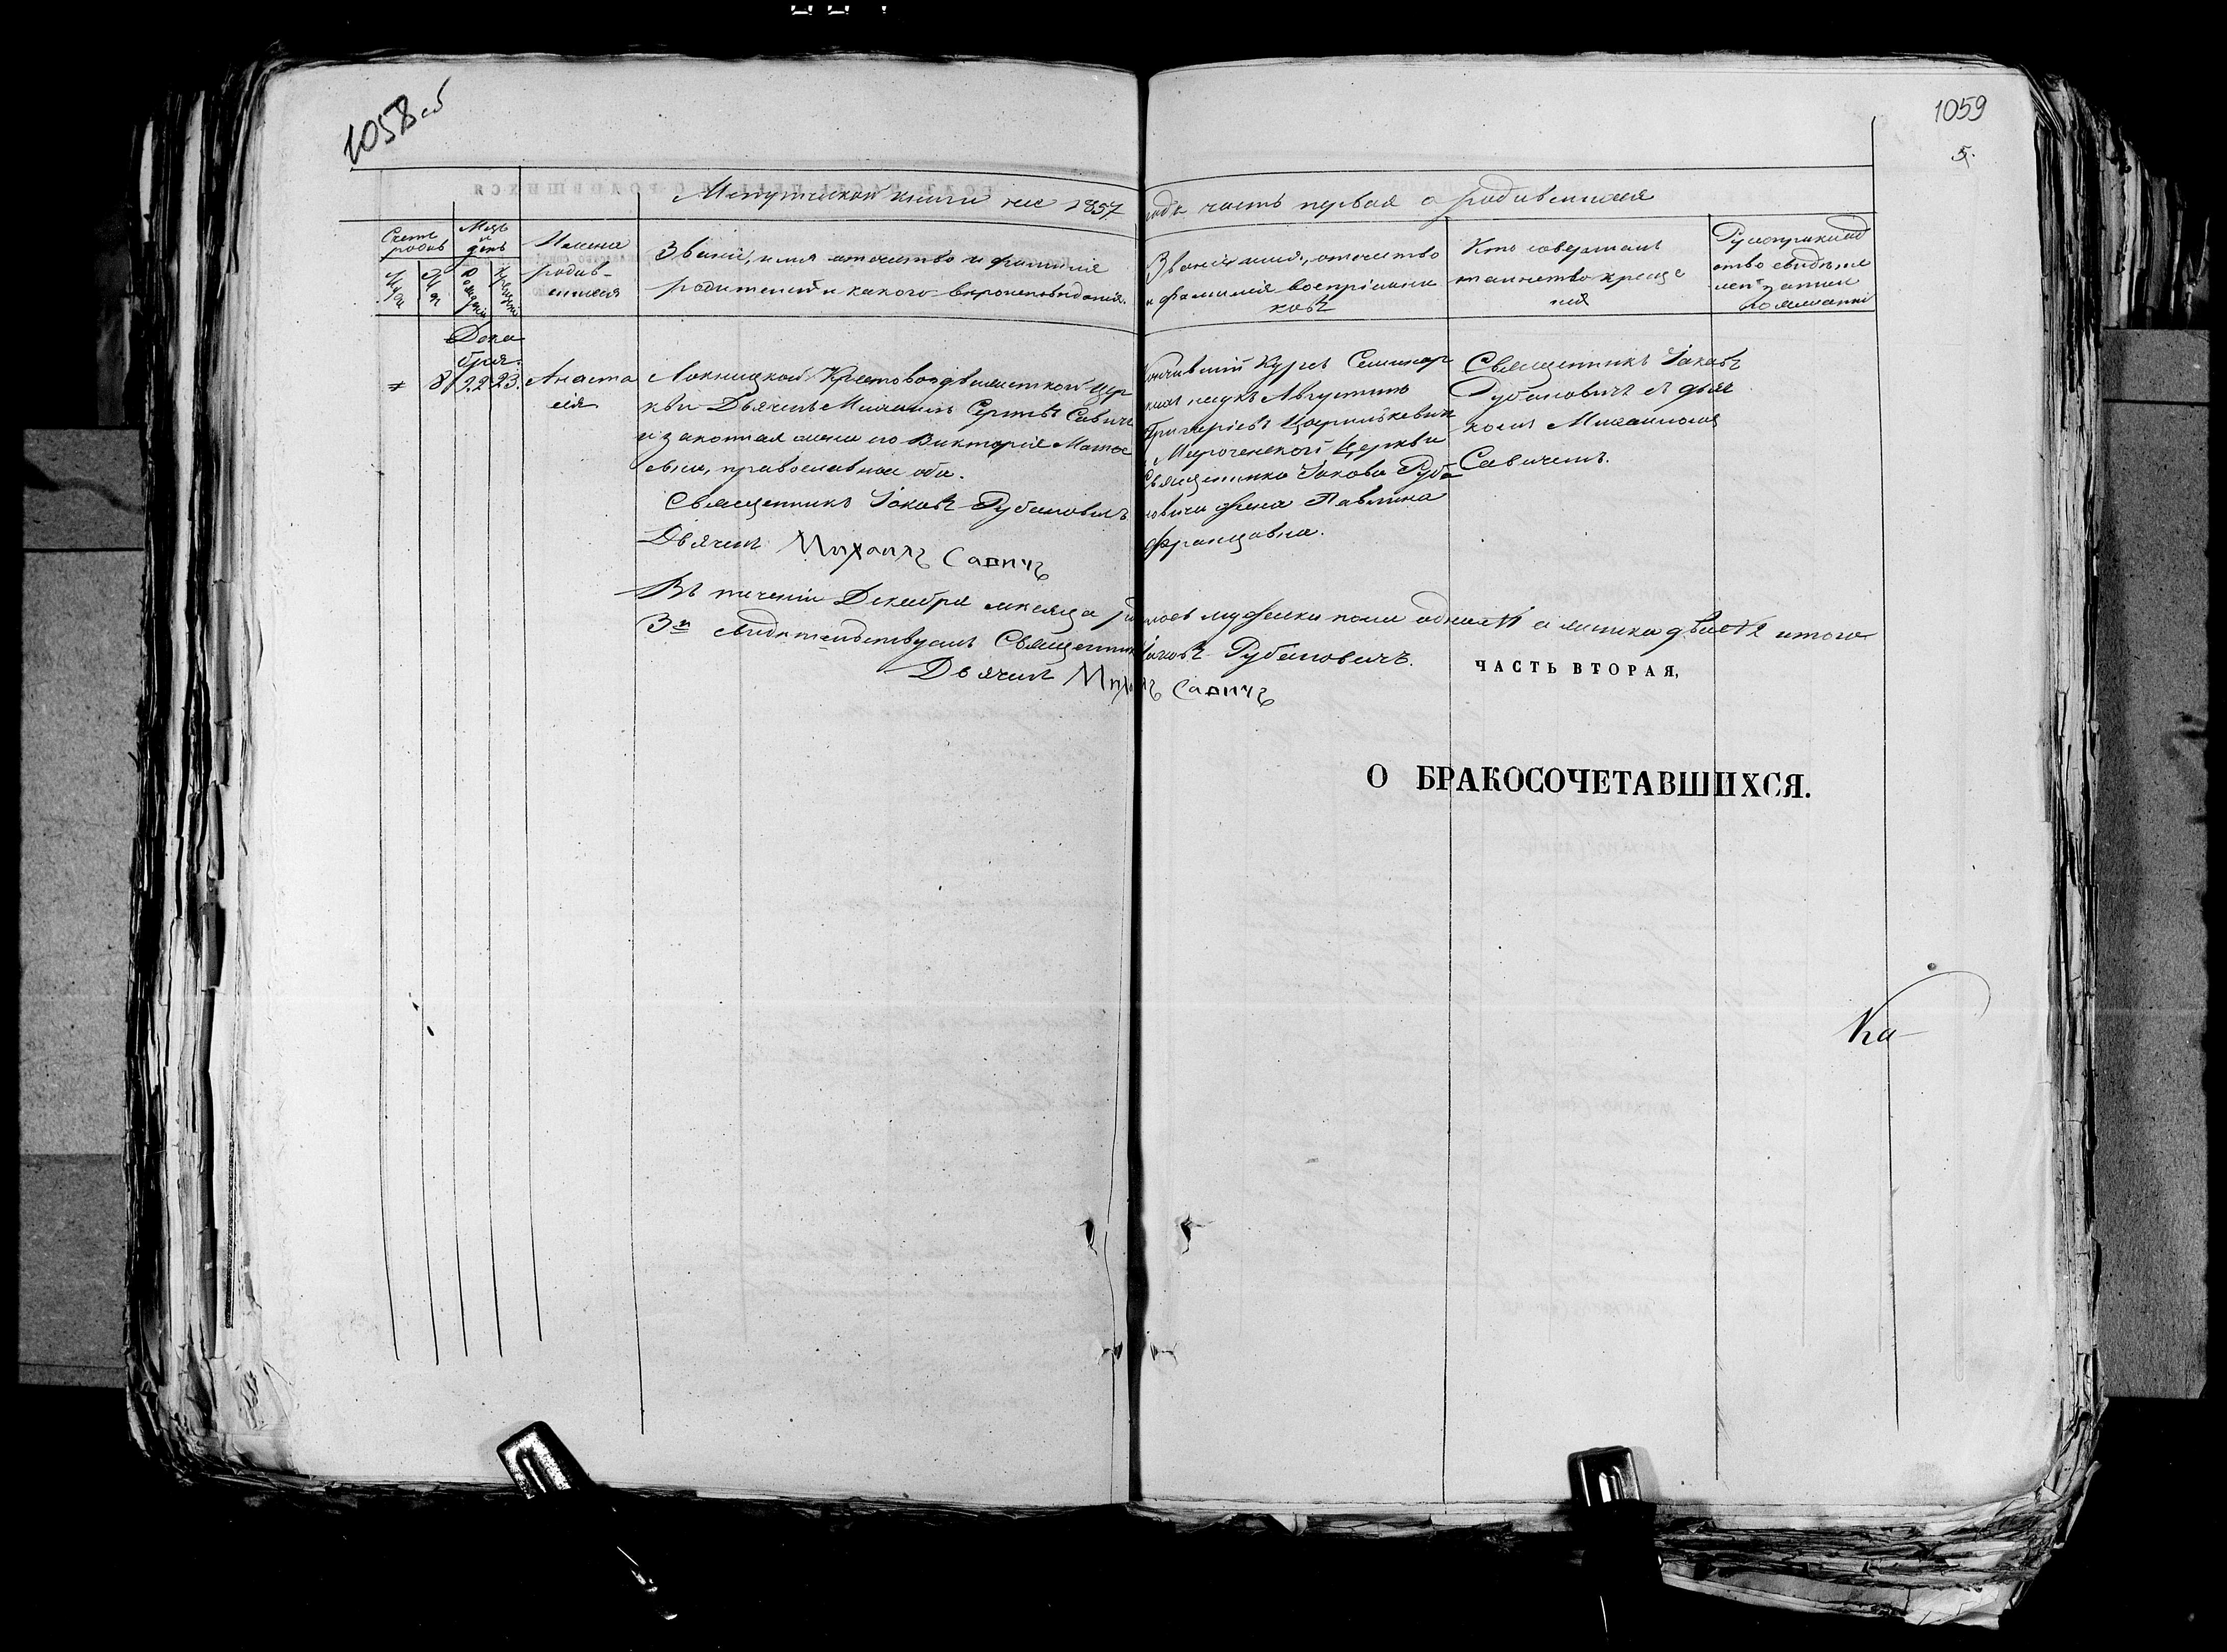 1058 об
1059
5.
Метрической книги на 1857 года часть первая о родившихся
Счетъ родив
Мсцъ и день
Имена родив-
шихся
Званіе, имя отчество и фамилія
родителей и какого вероисповиданія.
Званіе имя, отчество
и фамилія воспріимни
ковъ
Кто совершалъ
таинство креще
нія
Рукоприкла
ство свидѣте
Дека
бря.
8 22 23. Анаста
сія
Локницкой Крестовоздвиженской Цер
кви Дьячекъ Михаилъ Савичъ
и законная жена его Викторія
православные оба.
Священникъ Іаковъ Рубановичъ
Дьячекъ Михаилъ Савичъ
Кончившій Курсъ Семинар
скихъ наукъ Августинъ
Мороченской Церкви
Священника Іакова Руба
новича жена Павлина
Францовна.
Священникъ Іаковъ
Рубановичъ съ дьяч
комъ Михаиломъ
Савичемъ.
Въ теченіи Декабря месяца родилось мужеска пола одинъ №1 а женска двѣ №2 итого
3и свидѣтельствуемъ Священникъ Іаковъ Рубановичъ.
Дьячекъ Михаилъ Савичъ
ЧАСТЬ ВТОРАЯ,
О БРАКОСОЧЕТАВШИХСЯ.
Ка